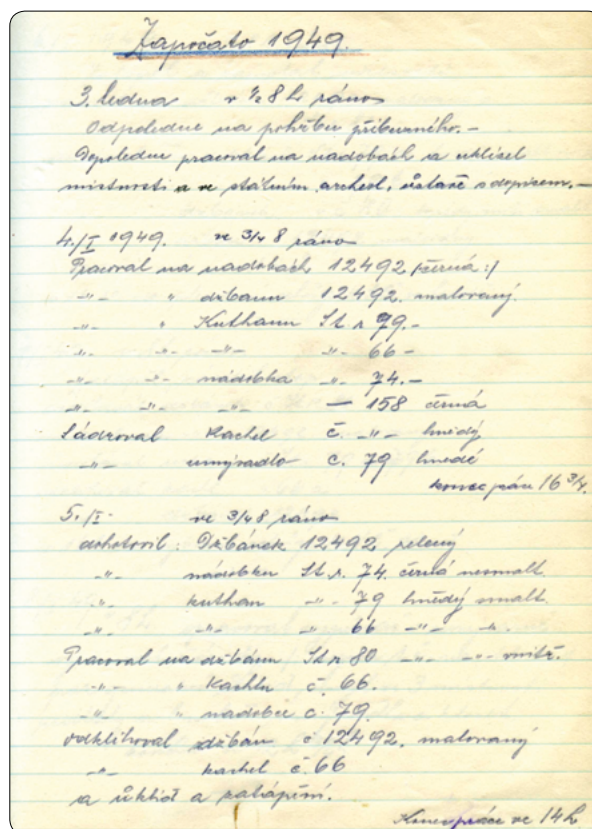 Započato 1949.
3. ledna v ½ 8 h ráno
Odpoledne na pohřbu příbuzného. –
Dopoledne pracoval na nadobách a uklízel
místnosti a ve státním archeol. ústavě s dopisem. –
4./I 1949. ve 3/4 8 ráno
Pracoval na nadobách 12492 /černá:/
-"- " džbánu 12492. malovaný
-"- " Kuthanu St. r 79. –
-"- -"- -"- "- 66 –
-"- -"- nádobka "- 74. –
-"- -"- -"- — 158 černá
Sádroval kachel č. -"- hnědý
-"- umývadlo č. 79 hnědé
konec práce 16 3/4.
5./I. ve 3/4 8 ráno
dohotovil: Džbánek 12492 zelený
-"- nádobku St. r. 74. černá nesmalt.
-"- kuthan -"- 79 hnědý smalt.
-"- -"- "- 66 -"- ".
Pracoval na džbánu St r 80 -"- -"- vnitř.
-"- " kachlu č. 66.
-"- " nadobce č. 79.
odklihoval džbán č 12492. malovaný
-"- kachel č. 66
a úklid a zatápění.
Konec práce ve 14 h